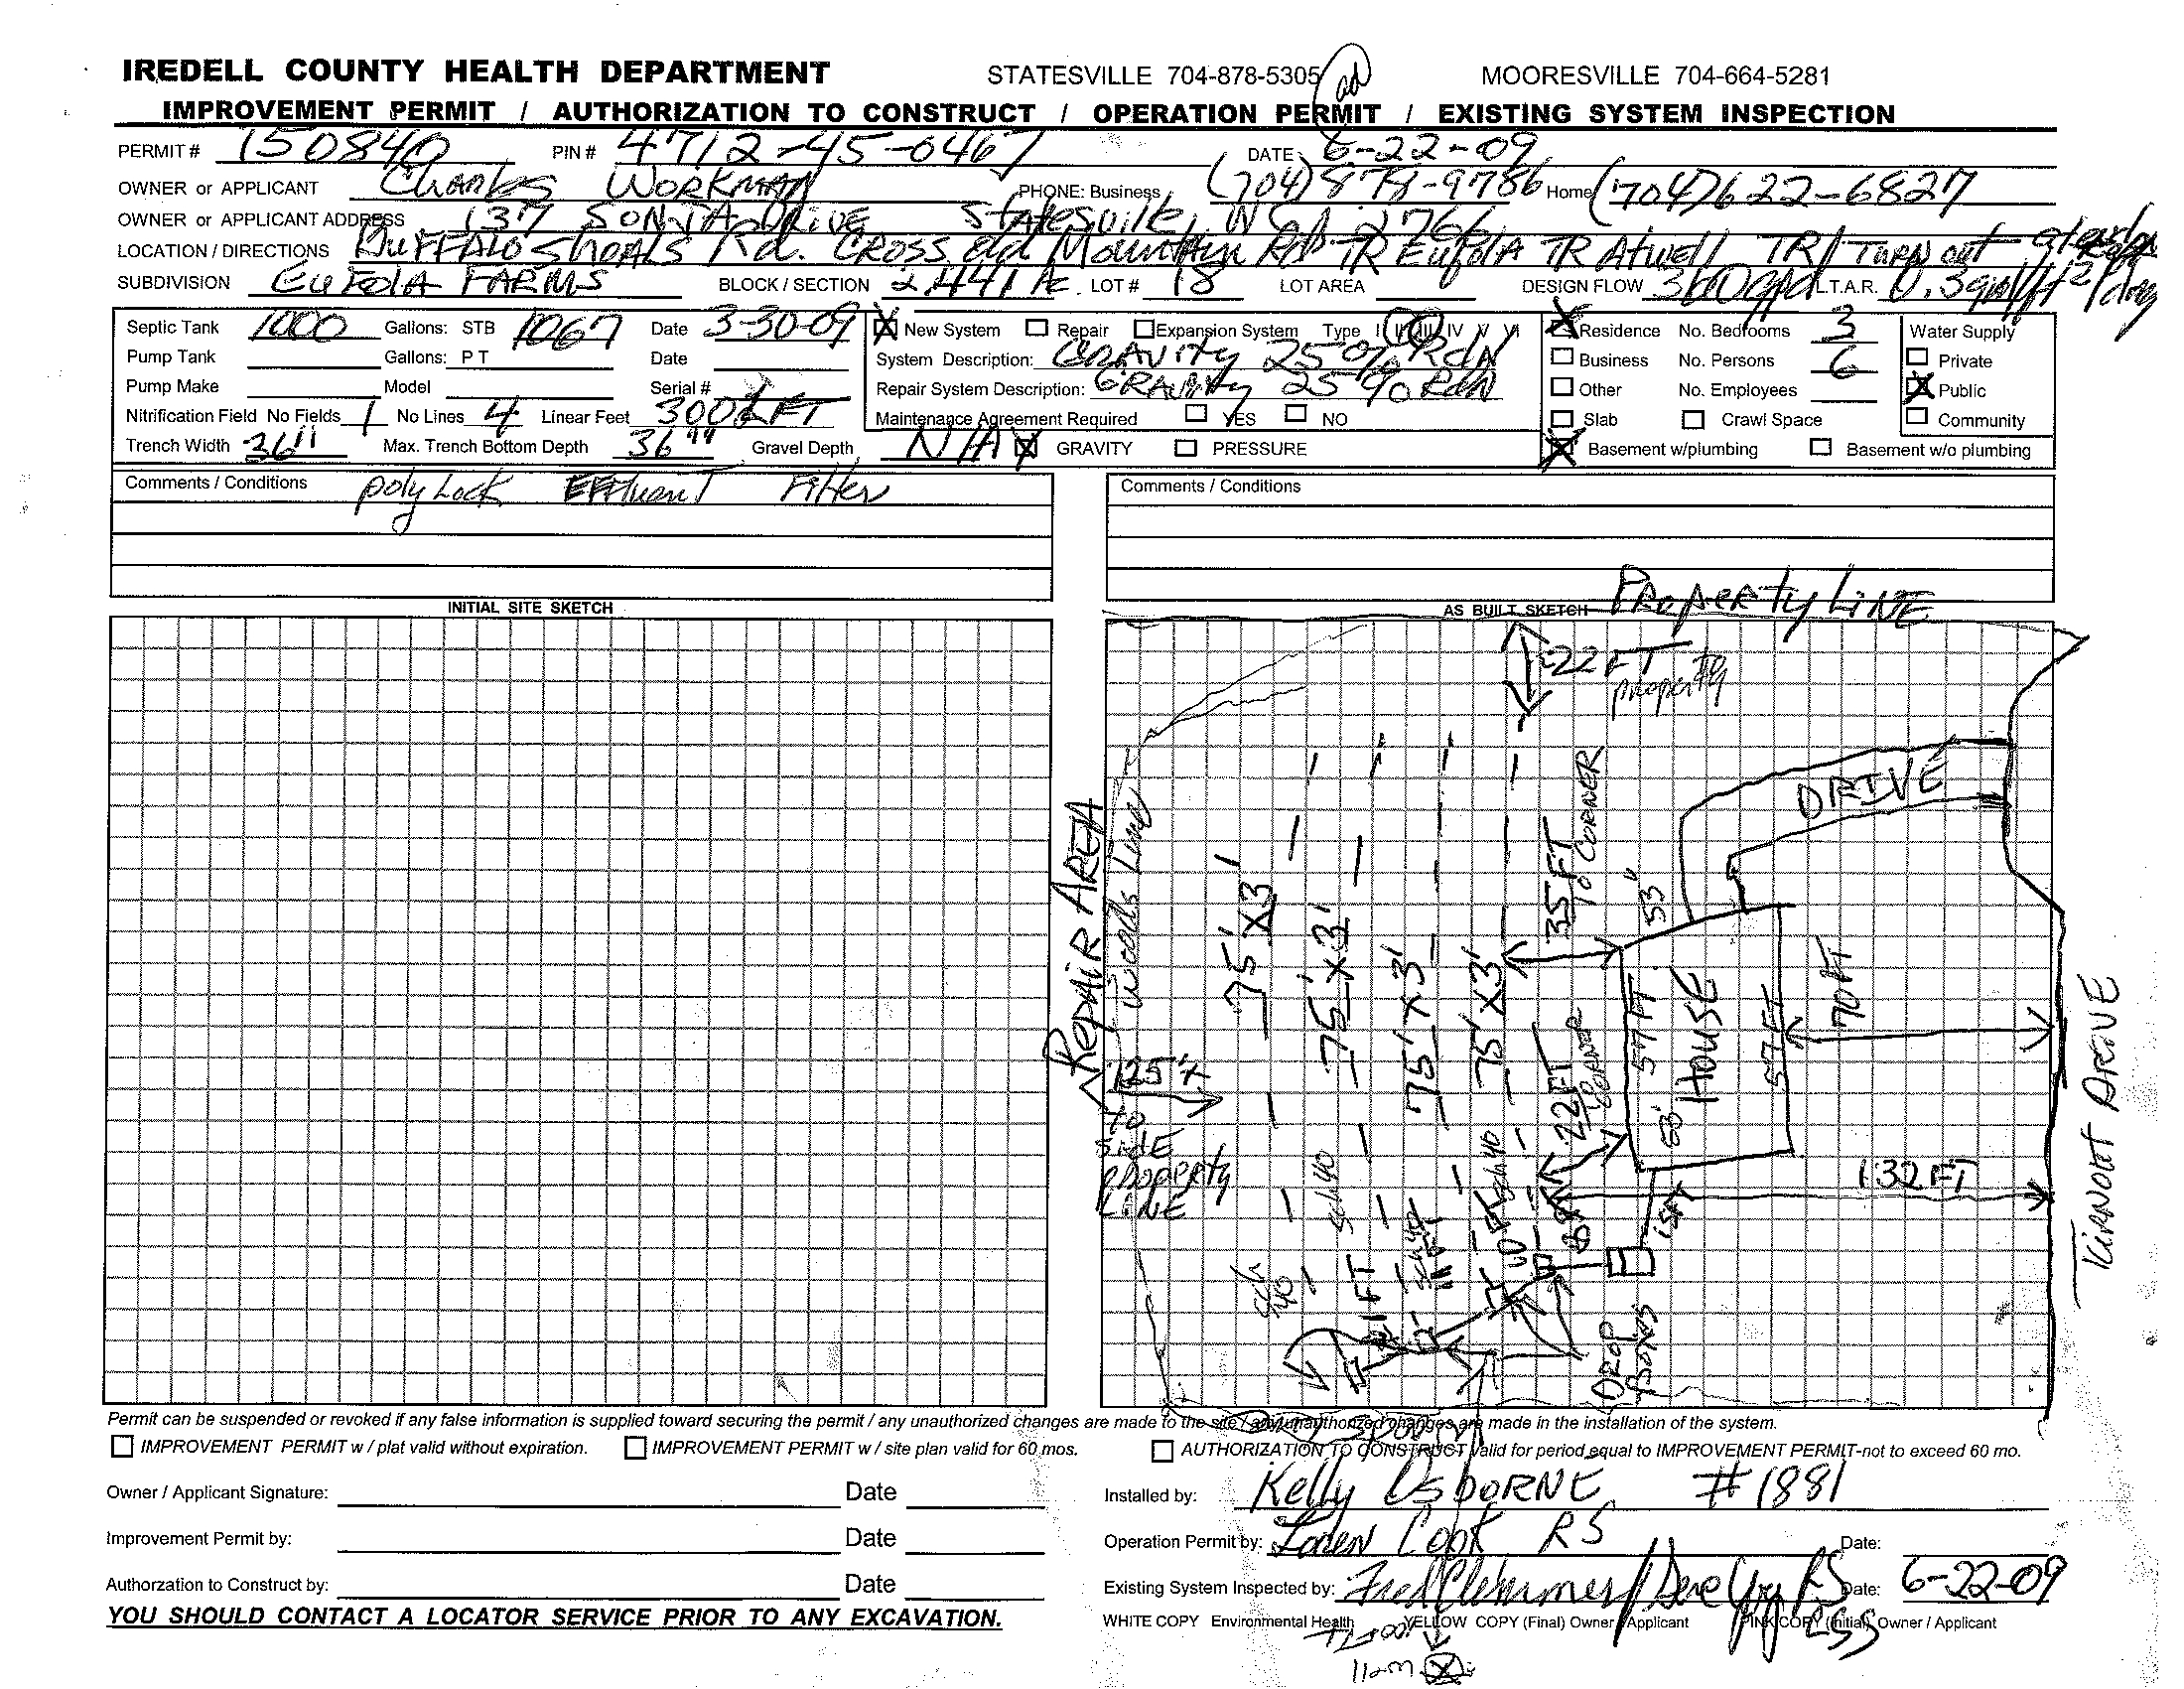 IREDELL COUNTY HEALTH DEPARTMENT STATESVILLE 704-878-5305 MOORESVILLE 704-664-5281
IMPROVEMENT PERMIT / AUTHORIZATION TO CONSTRUCT / OPERATION PERMIT / EXISTING SYSTEM INSPECTION
PERMIT # 150840 PIN # 4712-45-0467 DATE 6-22-09
OWNER or APPLICANT Charles WORKMAN PHONE: Business (704) 878-9786 Home (704) 622-6827
OWNER or APPLICANT ADDRESS 137 SONJA DRIVE Statesville, NC
LOCATION / DIRECTIONS BUFFALO SHOALS Rd. CROSS old Mountain Rd TR Eufola TR Atwell TR Turn out
SUBDIVISION EUFOLA FARMS BLOCK / SECTION 2.441 Ac. LOT # 18 LOT AREA DESIGN FLOW 360gpd L.T.A.R. 0.3gal/ft2/day
Septic Tank 1000 Gallons: STB 1067 Date 3-30-09 New System Repair Expansion System Type I II III IV V VI Residence No. Bedrooms 3 Water Supply
Pump Tank Gallons: P T Date System Description: GRAVITY 25% RdN Business No. Persons 6 Private
Pump Make Model Serial # Repair System Description: GRAVITY 25% RdN Other No. Employees Public
Nitrification Field No Fields 1 No Lines 4 Linear Feet 300 LFT Maintenance Agreement Required YES NO Slab Crawl Space Community
Trench Width 36" Max. Trench Bottom Depth 36" Gravel Depth N/A GRAVITY PRESSURE Basement w/plumbing Basement w/o plumbing
Comments / Conditions poly Lock EFFluenT Filter
Comments / Conditions
INITIAL SITE SKETCH
AS BUILT SKETCH PROPERTY LINE
22FT
property
DRIVE
REPAIR AREA
Woods Line
75' X3'
75' X3'
75' X3'
75' X3'
35FT
TO CORNER
53'
57FT
HOUSE
57FT
70FT
125'
TO
SIDE
PROPERTY
LINE
22FT
CORNER
132FT
KIRNAT DRIVE
sch 40
sch 40
sch 40
15FT
DROP
BOXES
Permit can be suspended or revoked if any false information is supplied toward securing the permit / any unauthorized changes are made to the site / any unauthorized changes are made in the installation of the system.
IMPROVEMENT PERMIT w / plat valid without expiration. IMPROVEMENT PERMIT w / site plan valid for 60 mos. AUTHORIZATION TO CONSTRUCT valid for period equal to IMPROVEMENT PERMIT-not to exceed 60 mo.
Owner / Applicant Signature: Date Installed by: Kelly OSBORNE #1881
Improvement Permit by: Date Operation Permit by: Loren Cook RS Date:
Authorzation to Construct by: Date Existing System Inspected by: Date: 6-22-09
YOU SHOULD CONTACT A LOCATOR SERVICE PRIOR TO ANY EXCAVATION. WHITE COPY Environmental Health YELLOW COPY (Final) Owner / Applicant PINK COPY (Initial) Owner / Applicant